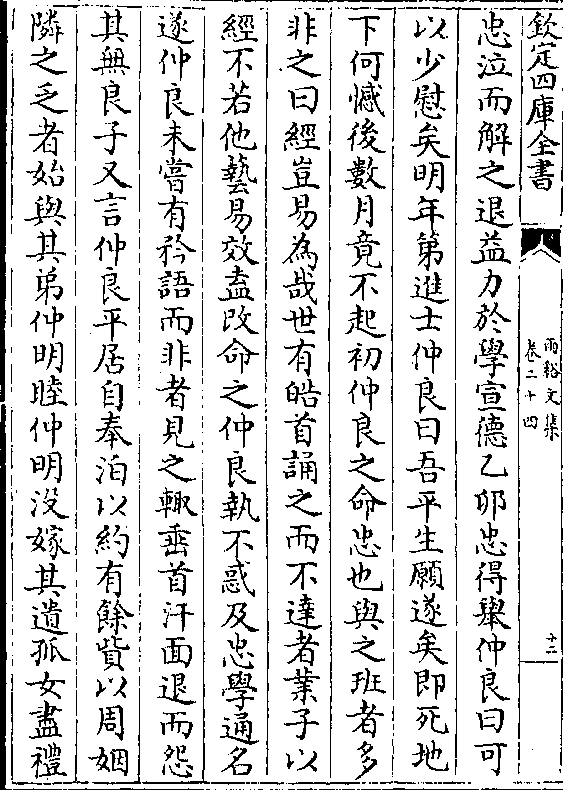 欽定四庫全書
兩谿文集
卷二十四
十二
忠泣而解之退益力於學宣德乙卯忠得舉仲良曰可
以少慰矣明年第進士仲良曰吾平生願遂矣即死地
下何憾後數月竟不起初仲良之命忠也與之班者多
非之曰經豈易為哉世有皓首誦之而不達者業子以
經不若他藝易效盍改命之仲良執不惑及忠學通名
遂仲良未嘗有矜語而非者見之輙垂首汗面退而怨
其無良子又言仲良平居自奉泊以約有餘貲以周姻
隣之乏者始與其弟仲明睦仲明没嫁其遺孤女盡禮